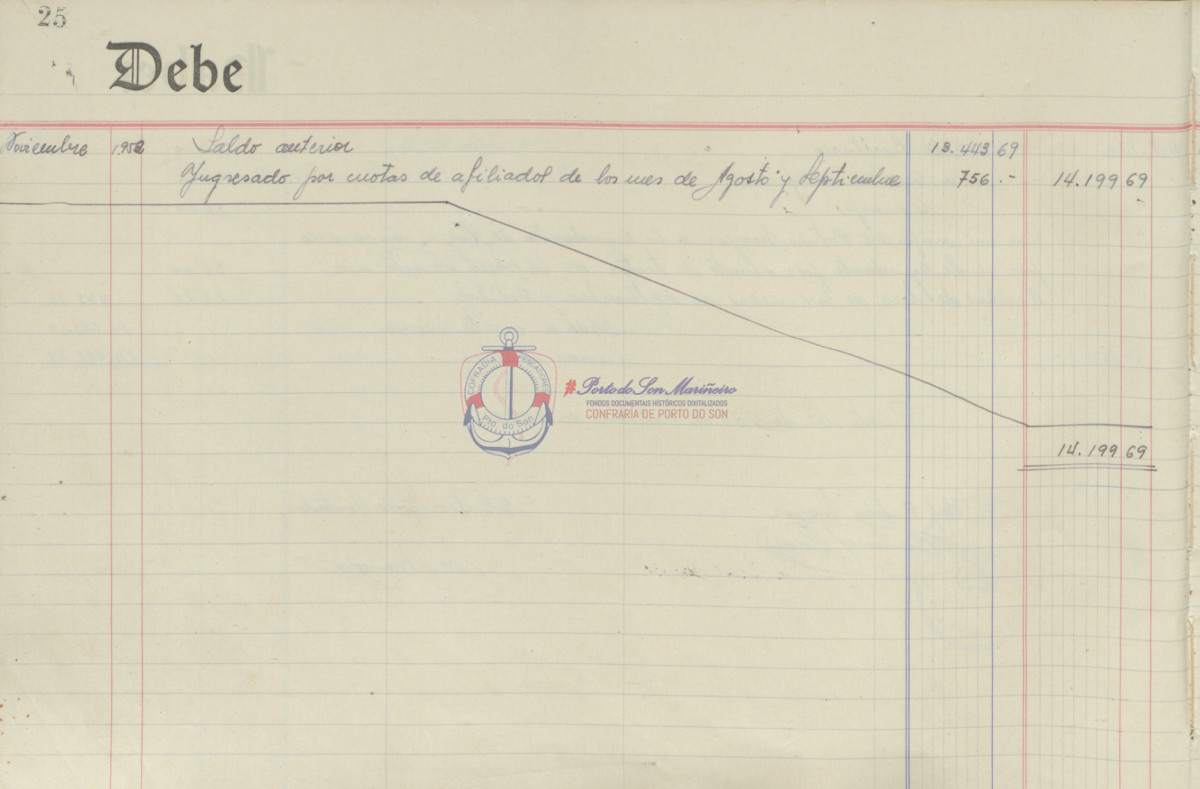 25
Debe
Noviembre 1.952 Saldo anterior 13.443 69
Yngresado por cuotas de afiliados de los mes de Agosto y Septiembre 756 .- 14.199 69
COFRADIA PESCADORES
Pto. do Son
#Porto do Son Mariñeiro
FONDOS DOCUMENTAIS HISTÓRICOS DIXITALIZADOS
CONFRARÍA DE PORTO DO SON
14.199 69